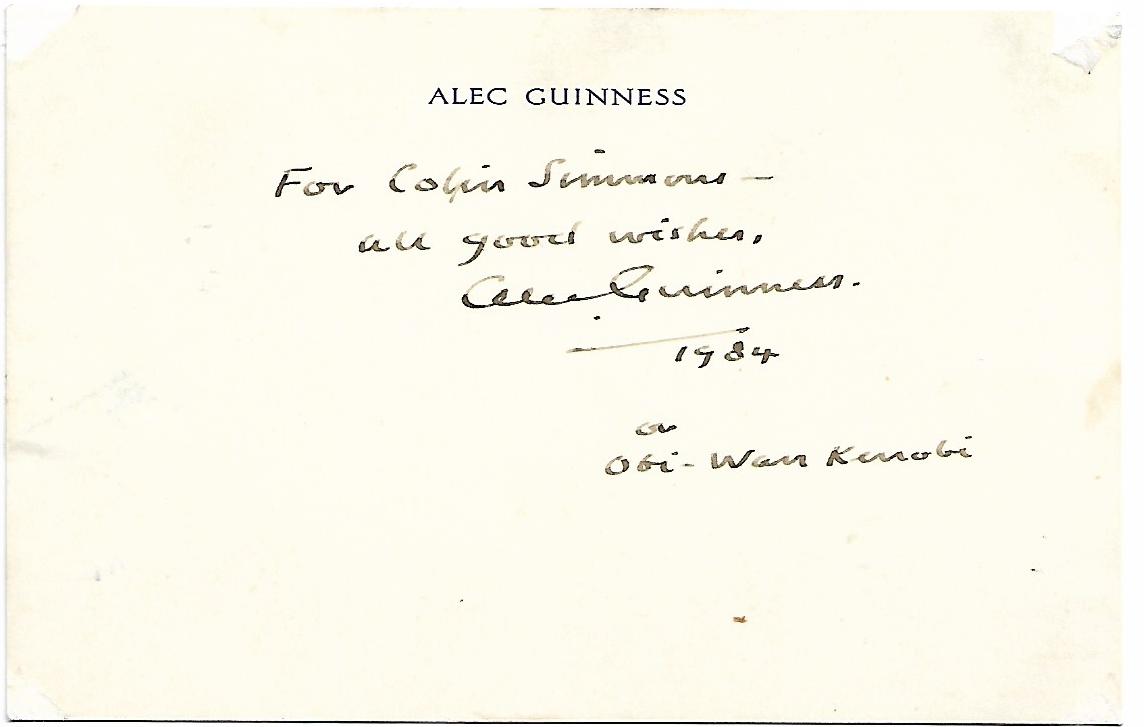 ALEC GUINNESS
For Colin Simmons —
all good wishes,
Alec Guinness.
1984
or
Obi-Wan Kenobi